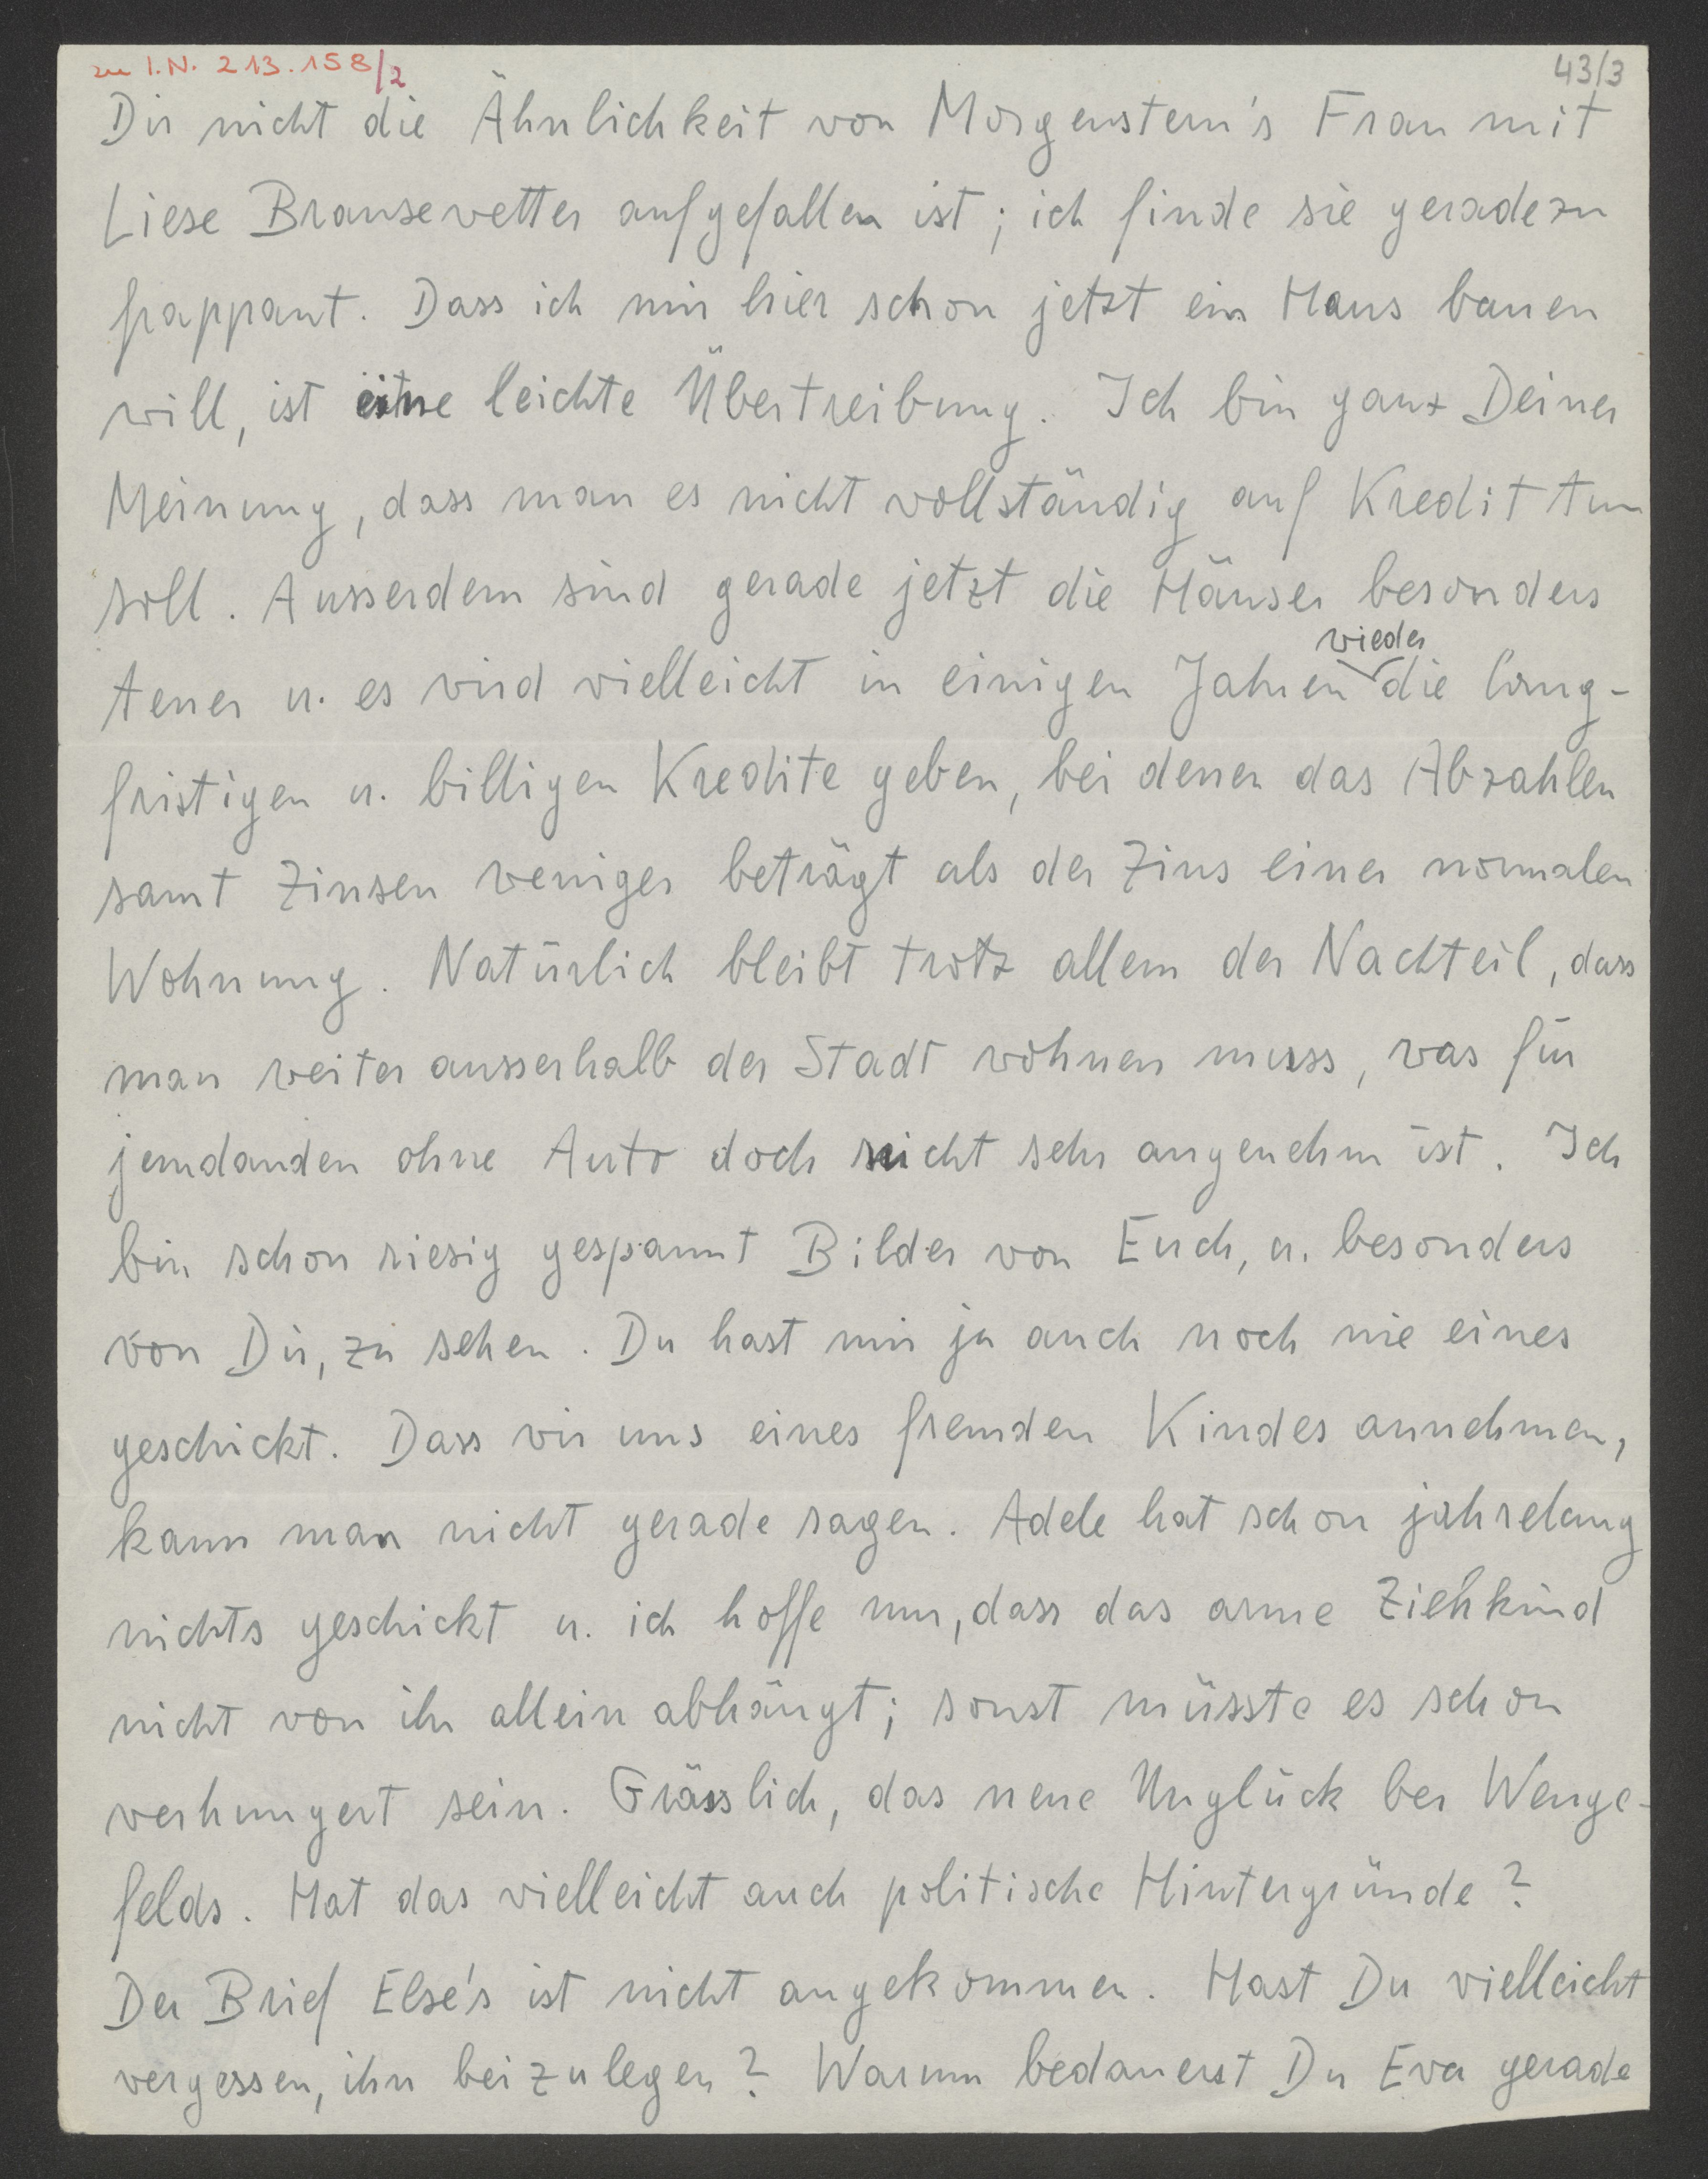 zu I.N. 213.158/2
43/3
Dir nicht die Ähnlichkeit von Morgenstern's Frau mit
Liese Brausewetter aufgefallen ist; ich finde sie geradezu
frappant. Dass ich mir hier schon jetzt ein Haus bauen
will, ist eine leichte Übertreibung. Ich bin ganz Deiner
Meinung, dass man es nicht vollständig auf Kredit tun
soll. Ausserdem sind gerade jetzt die Häuser besonders
wieder
teuer u. es wird vielleicht in einigen Jahren die lang-
fristigen u. billigen Kredite geben, bei denen das Abzahlen
samt Zinsen weniger beträgt als der Zins einer normalen
Wohnung. Natürlich bleibt trotz allem der Nachteil, dass
man weiter ausserhalb der Stadt wohnen muss, was für
jemdanden ohne Auto doch nicht sehr angenehm ist. Ich
bin schon riesig gespannt Bilder von Euch, u. besonders
von Dir, zu sehen. Du hast mir ja auch noch nie eines
geschickt. Dass wir uns eines fremden Kindes annehmen,
kann man nicht gerade sagen. Adele hat schon jahrelang
nichts geschickt u. ich hoffe nur, dass das arme Ziehkind
nicht von ihr allein abhängt; sonst müsste es schon
verhungert sein. Grässlich, das neue Unglück bei Wenge-
felds. Hat das vielleicht auch politische Hintergründe?
Der Brief Else's ist nicht angekommen. Hast Du vielleicht
vergessen, ihn beizulegen? Warum bedauerst Du Eva gerade